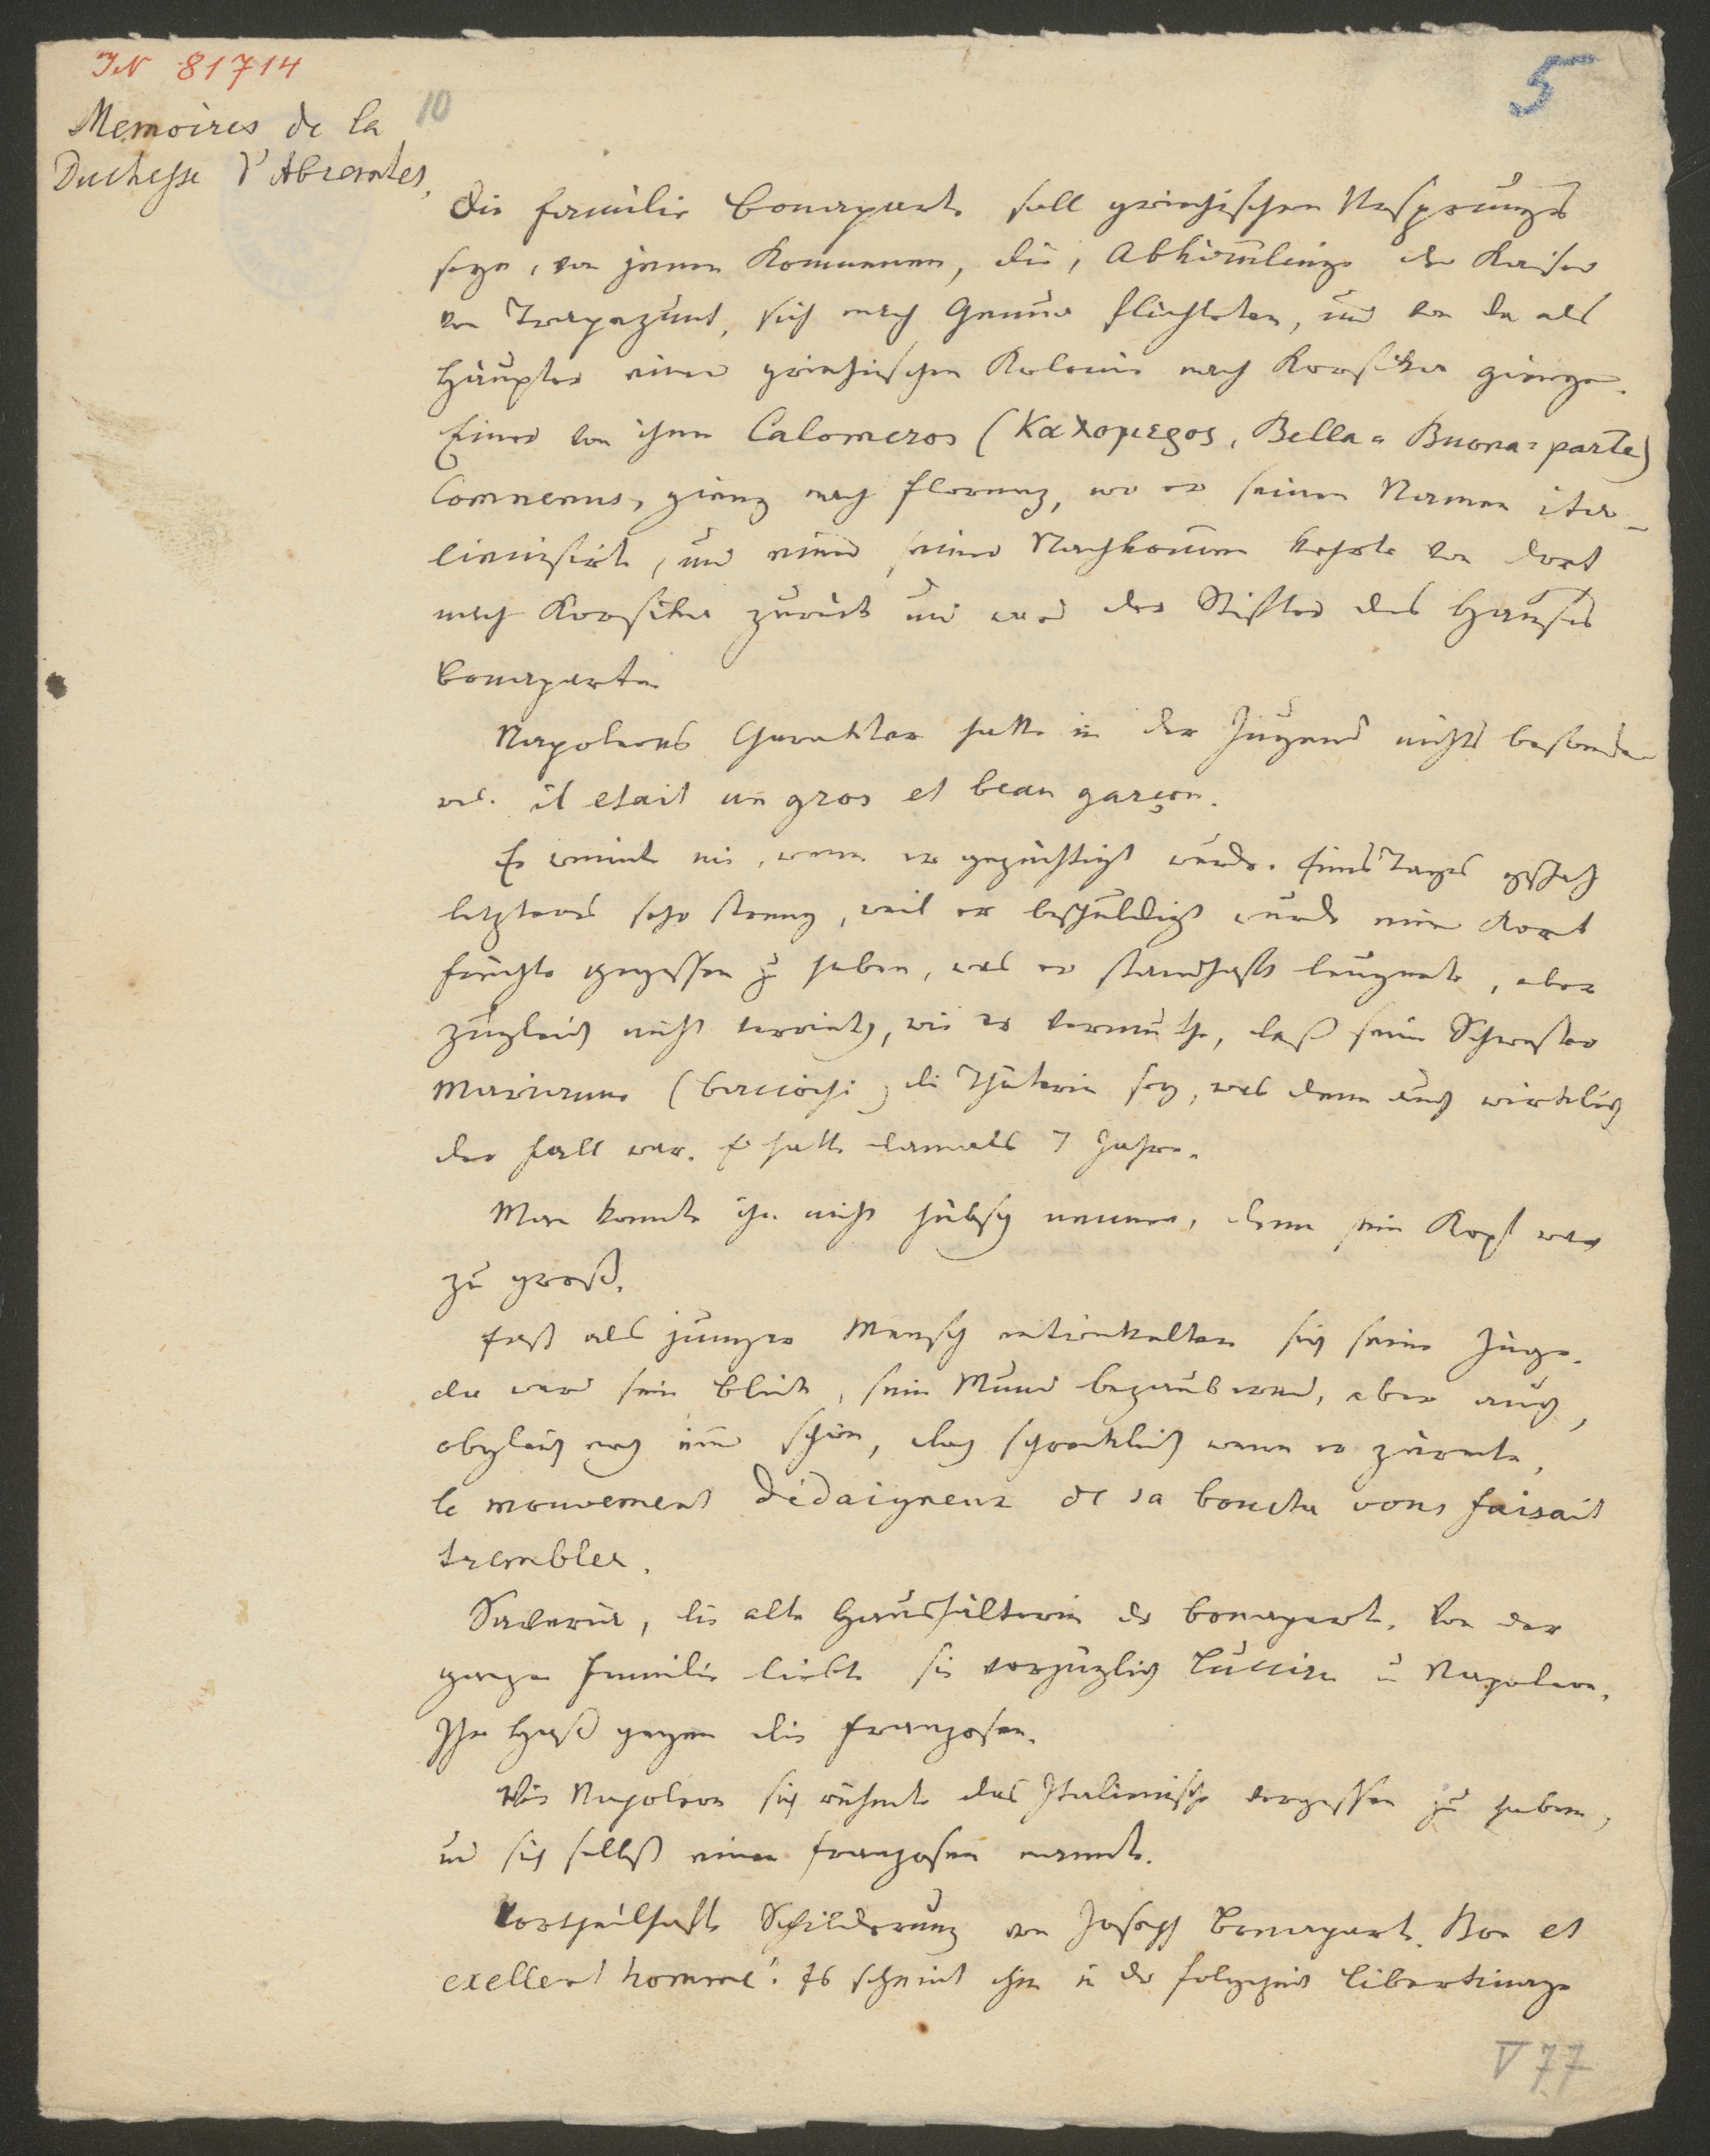 IN 81714
5
10
Memoires de la
Duchesse d'Abrantes.
Die Familie Bonaparte soll griechischen Ursprungs
seyn, von jenen Komnenen, die, Abkömlinge der Kaiser
von Trapezunt, sich nach Genua flüchteten, und von da als
Häupter einer griechischen Kolonie nach Korsika giengen.
Einer von ihnen Calomeros (Καλομερος, Bella= Buona=parte)
Comnenus, gieng nach Florenz, wo er seinen Namen ita-
lienisirte, und einer seiner Nachkommen kehrte von dort
nach Korsika zurück und war der Stifter des Hauses
Bonaparte
Napoleons Charakter hatte in der Jugend nichts besonde-
res. il etait un gros et beau garçon.
Er weinte nie, wenn er gezüchtigt wurde. Eines Tages geschah
letzteres sehr streng, weil er beschuldigt wurde einen Korb
Früchte gegessen zu haben, was er standhaft leugnete, aber
zugleich nicht verrieth, wie er vermuthe, daß seine Schwester
Marianne (Bacciochi) die Thäterin sey, was denn auch wirklich
der Fall war. Er hatte damals 7 Jahre.
Man konnte ihn nicht hübsch nennen, denn sein Kopf war
zu groß.
Erst als junger Mensch entwickelten sich seine Züge.
da war sein Blick, sein Mund bezaubernd, aber auch,
obgleich noch immer schön, doch schrecklich wenn er zürnte,
le mouvement dédaigneux de sa bouche vous faisait
trembler.
Saveria, die alte Haushälterin der Bonaparte. Von der
ganzen Familie liebte sie vorzüglich Lucien u Napoleon.
Ihr Haß gegen die Franzosen.
Wie Napoleon sich rühmte das Italienische vergessen zu haben,
und sich selbst einen Franzosen nannte.
Vortheilhafte Schilderung von Joseph Bonaparte. Bon et
exellent homme! Es scheint ihm in der Folgezeit Libertinage
V 77